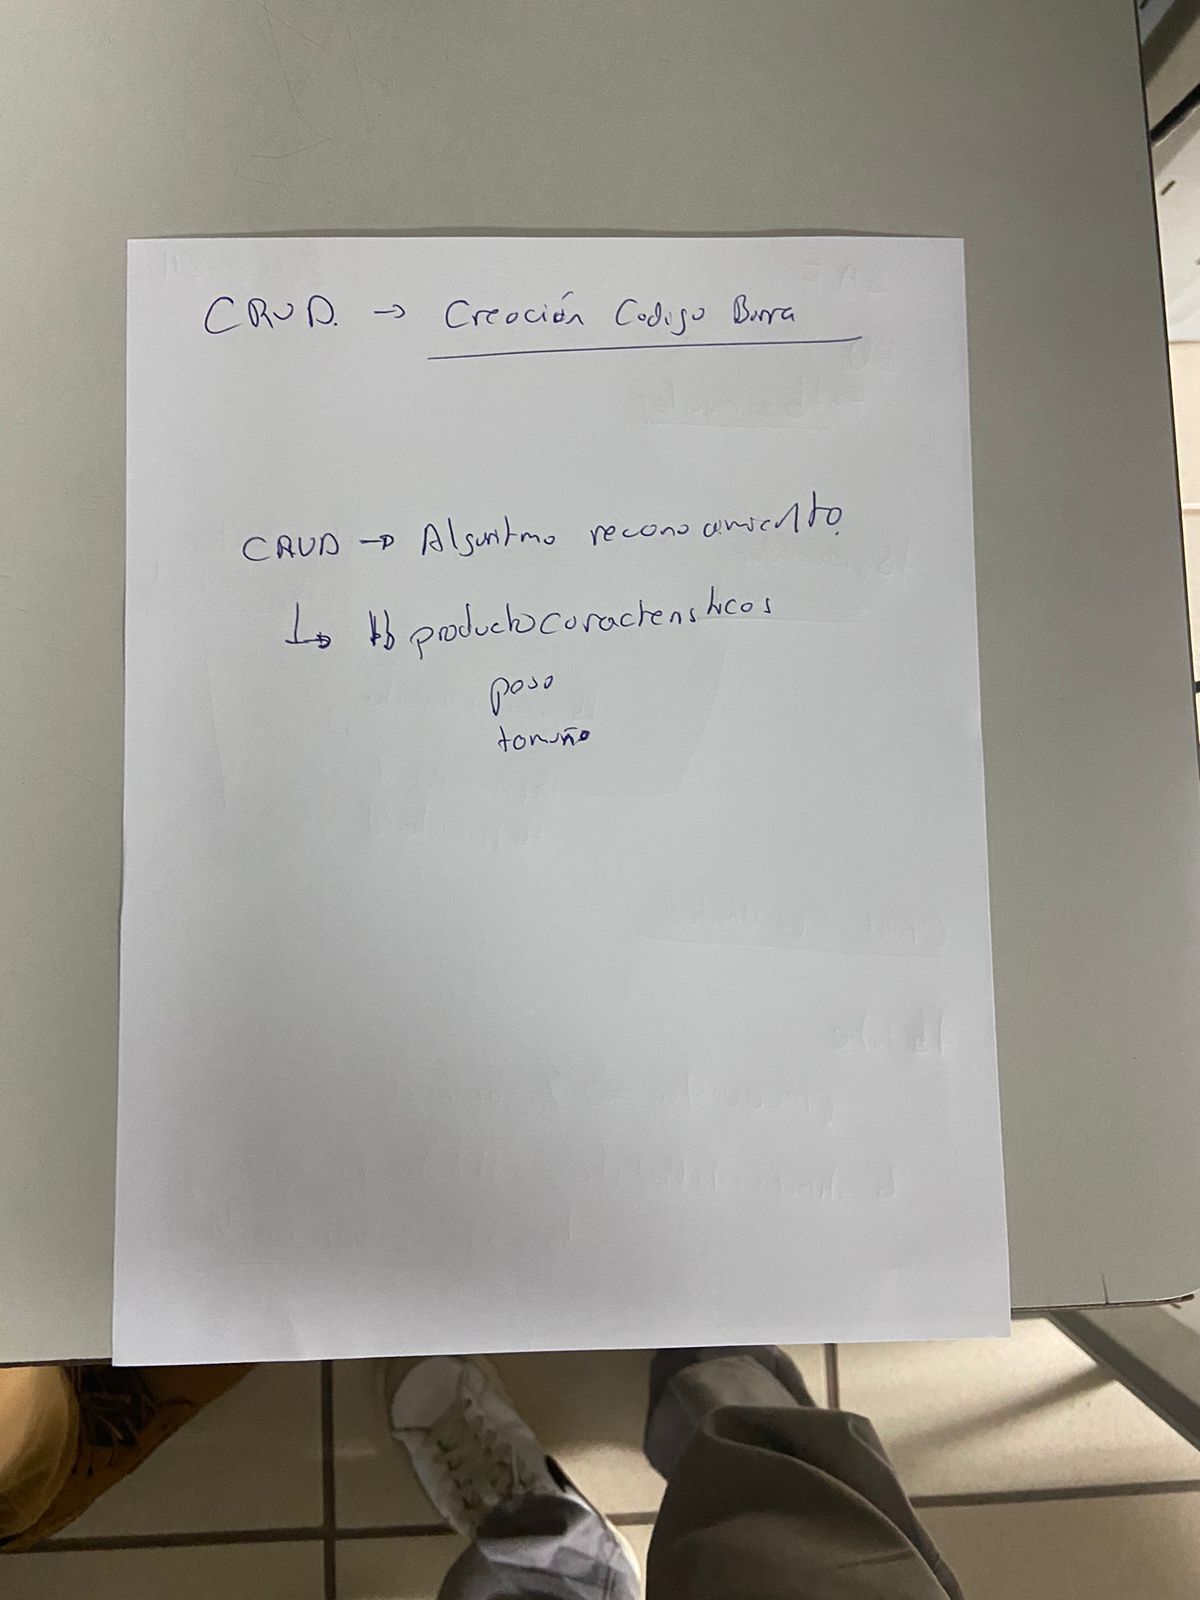 CRUD. → Creación Codigo Barra
CRUD → Algoritmo reconocimiento.
↳ tb productocaracteristicos
peso
tamaño